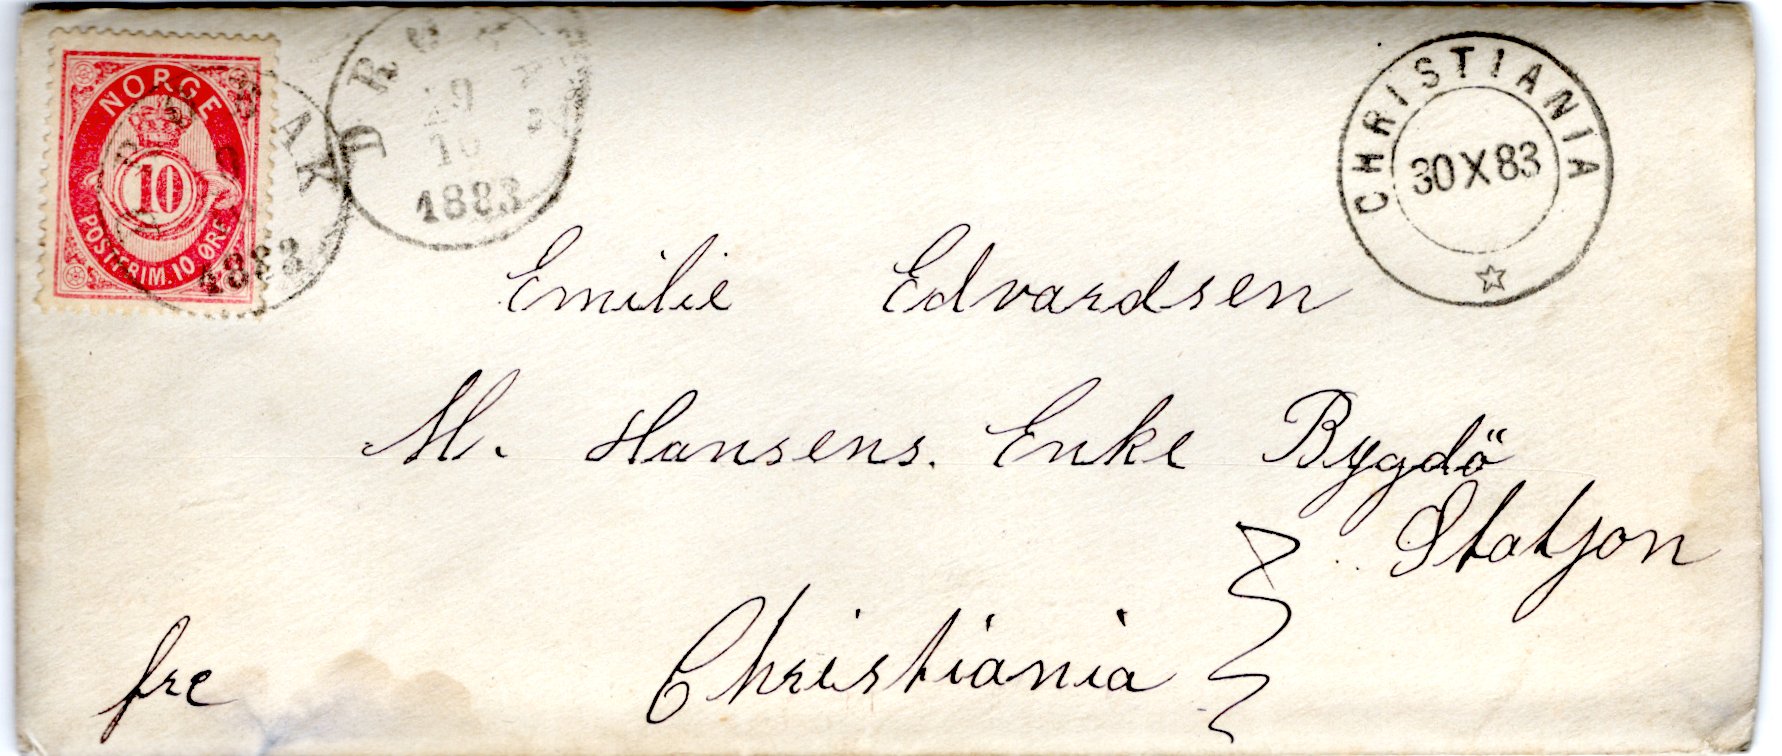 NORGE
10
POSTFRIM. 10 ØRE
1883
DRØBAK
29
10
1883
CHRISTIANIA
30 X 83
Emilie Edvardsen
M. Hansens. Enke Bygdö
Statjon
Christiania
fre